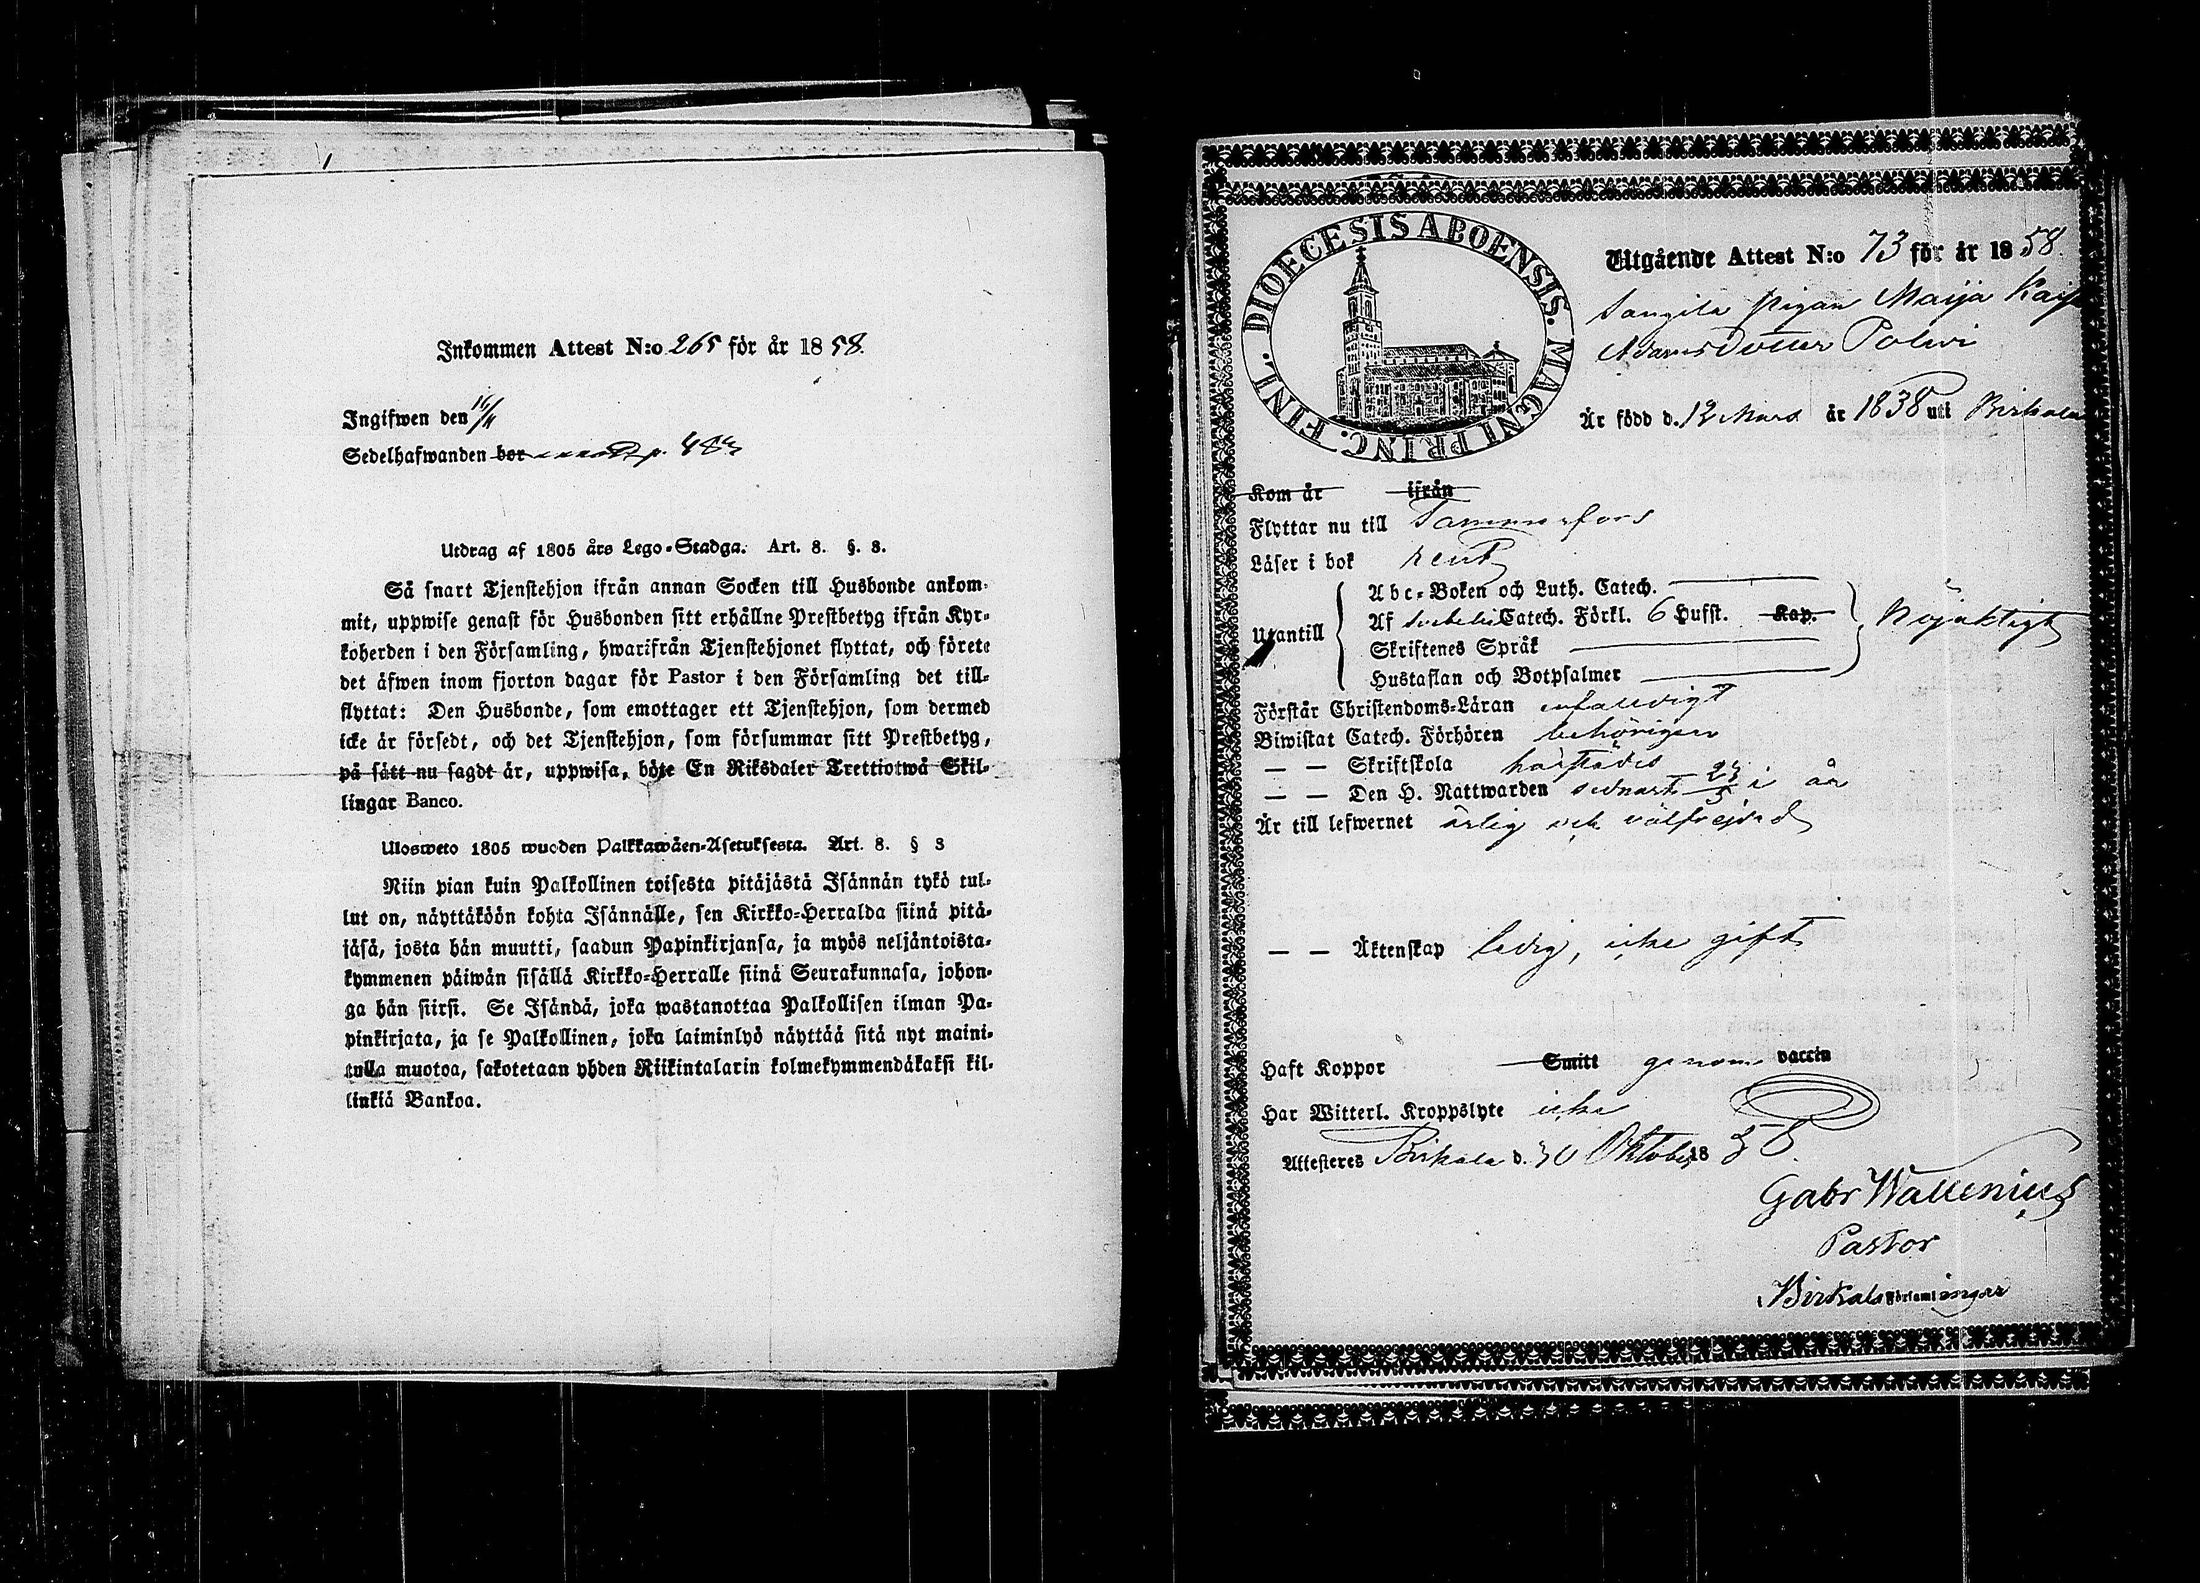 Inkommen Attest N:o 265 för år 1858.
Ingifwen den 16/11
Sedelhafwanden bor p. 483
Utdrag af 1805 års Lego-Stadga. Art. 8. §. 8.
Så snart Tjenstehjon ifrån annan Socken till Husbonde ankom-
mit, uppwise genast för Husbonden sitt erhållne Prestbetyg ifrån Kyr-
koherden i den Församling, hwarifrån Tjenstehjonet flyttat, och förete
det äfwen inom fjorton dagar för Pastor i den Församling det till-
flyttat: Den Husbonde, som emottager ett Tjenstehjon, som dermed
icke är försedt, och det Tjenstehjon, som försummar sitt Prestbetyg,
på sätt nu sagdt är, uppwisa, böte En Riksdaler Trettiotwå Skil-
lingar Banco.
Ulosweto 1805 wuoden Palkkawäen-Asetuksesta. Art. 8. § 8
Niin pian kuin Palkollinen toisesta pitäjästä Isännän tykö tul-
lut on, näyttäköön kohta Isännälle, sen Kirkko-Herralda siinä pitä-
jäsä, josta hän muutti, saadun Papinkirjansa, ja myös neljäntoista-
kymmenen päiwän sisällä Kirkko-Herralle siinä Seurakunnasa, johon-
ga hän siirsi. Se Isändä, joka wastanottaa Palkollisen ilman Pa-
pinkirjata, ja se Palkollinen, joka laiminlyö näyttää sitä nyt maini-
tulla muotoa, sakotetaan yhden Riikintalarin kolmekymmendäkaksi kil-
linkiä Bankoa.
DIOECESIS ABOENSIS. MAGNI PRINC. FINL.
Utgående Attest N:o 73 för år 1858.
pigan Maija Kajsa
Adamsdotter
Är född d. 12 Mars år 1838 uti Birkala
Kom år ifrån
Flyttar nu till Tammerfors
Läser i bok rent
Utantill
Abc-Boken och Luth. Catech.
Af Svebelii Catech. Förkl. 6 Hufst. Kap.
Skriftenes Språk
Hustaflan och Botpsalmer
Nöjaktigt
Förstår Christendoms-Läran enfaldigt
Biwistat Catech. Förhören behörigen
— — Skriftskola härstädes
— — Den H. Nattwarden sednast i år
Är till lefwernet ärlig och välfrejdad
— — Äktenskap ledig, icke gift
Haft Koppor Smitt genom vaccin
Har Witterl. Kroppslyte icke
Attesteres Birkala d. 30 Oktober 1858.
Gabr Wallenius
Pastor
Birkala Församlingar